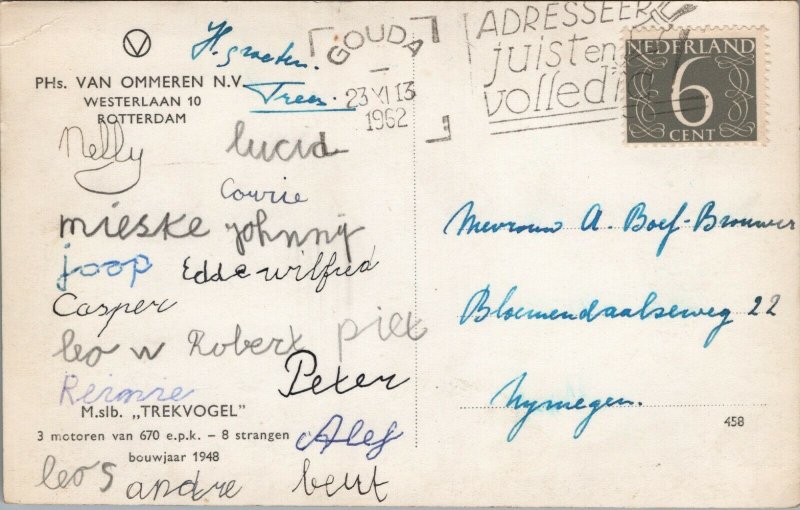 H. groeten.
Trees.
PHs. VAN OMMEREN N.V.
WESTERLAAN 10
ROTTERDAM
GOUDA
23 XI 13
1962
ADRESSEER
juist en
volledig
NEDERLAND
6
CENT
Nelly
lucia
Corrie
mieske johnny
joop Edde wilfred
Casper
leo w Robert piet
Peter
M.slb. „TREKVOGEL"
3 motoren van 670 e.p.k. – 8 strangen
bouwjaar 1948
Alef
leo s andre bert
Mevrouw A. Boef-Brouwer
Bloemendaalseweg 22
Nymegen.
458